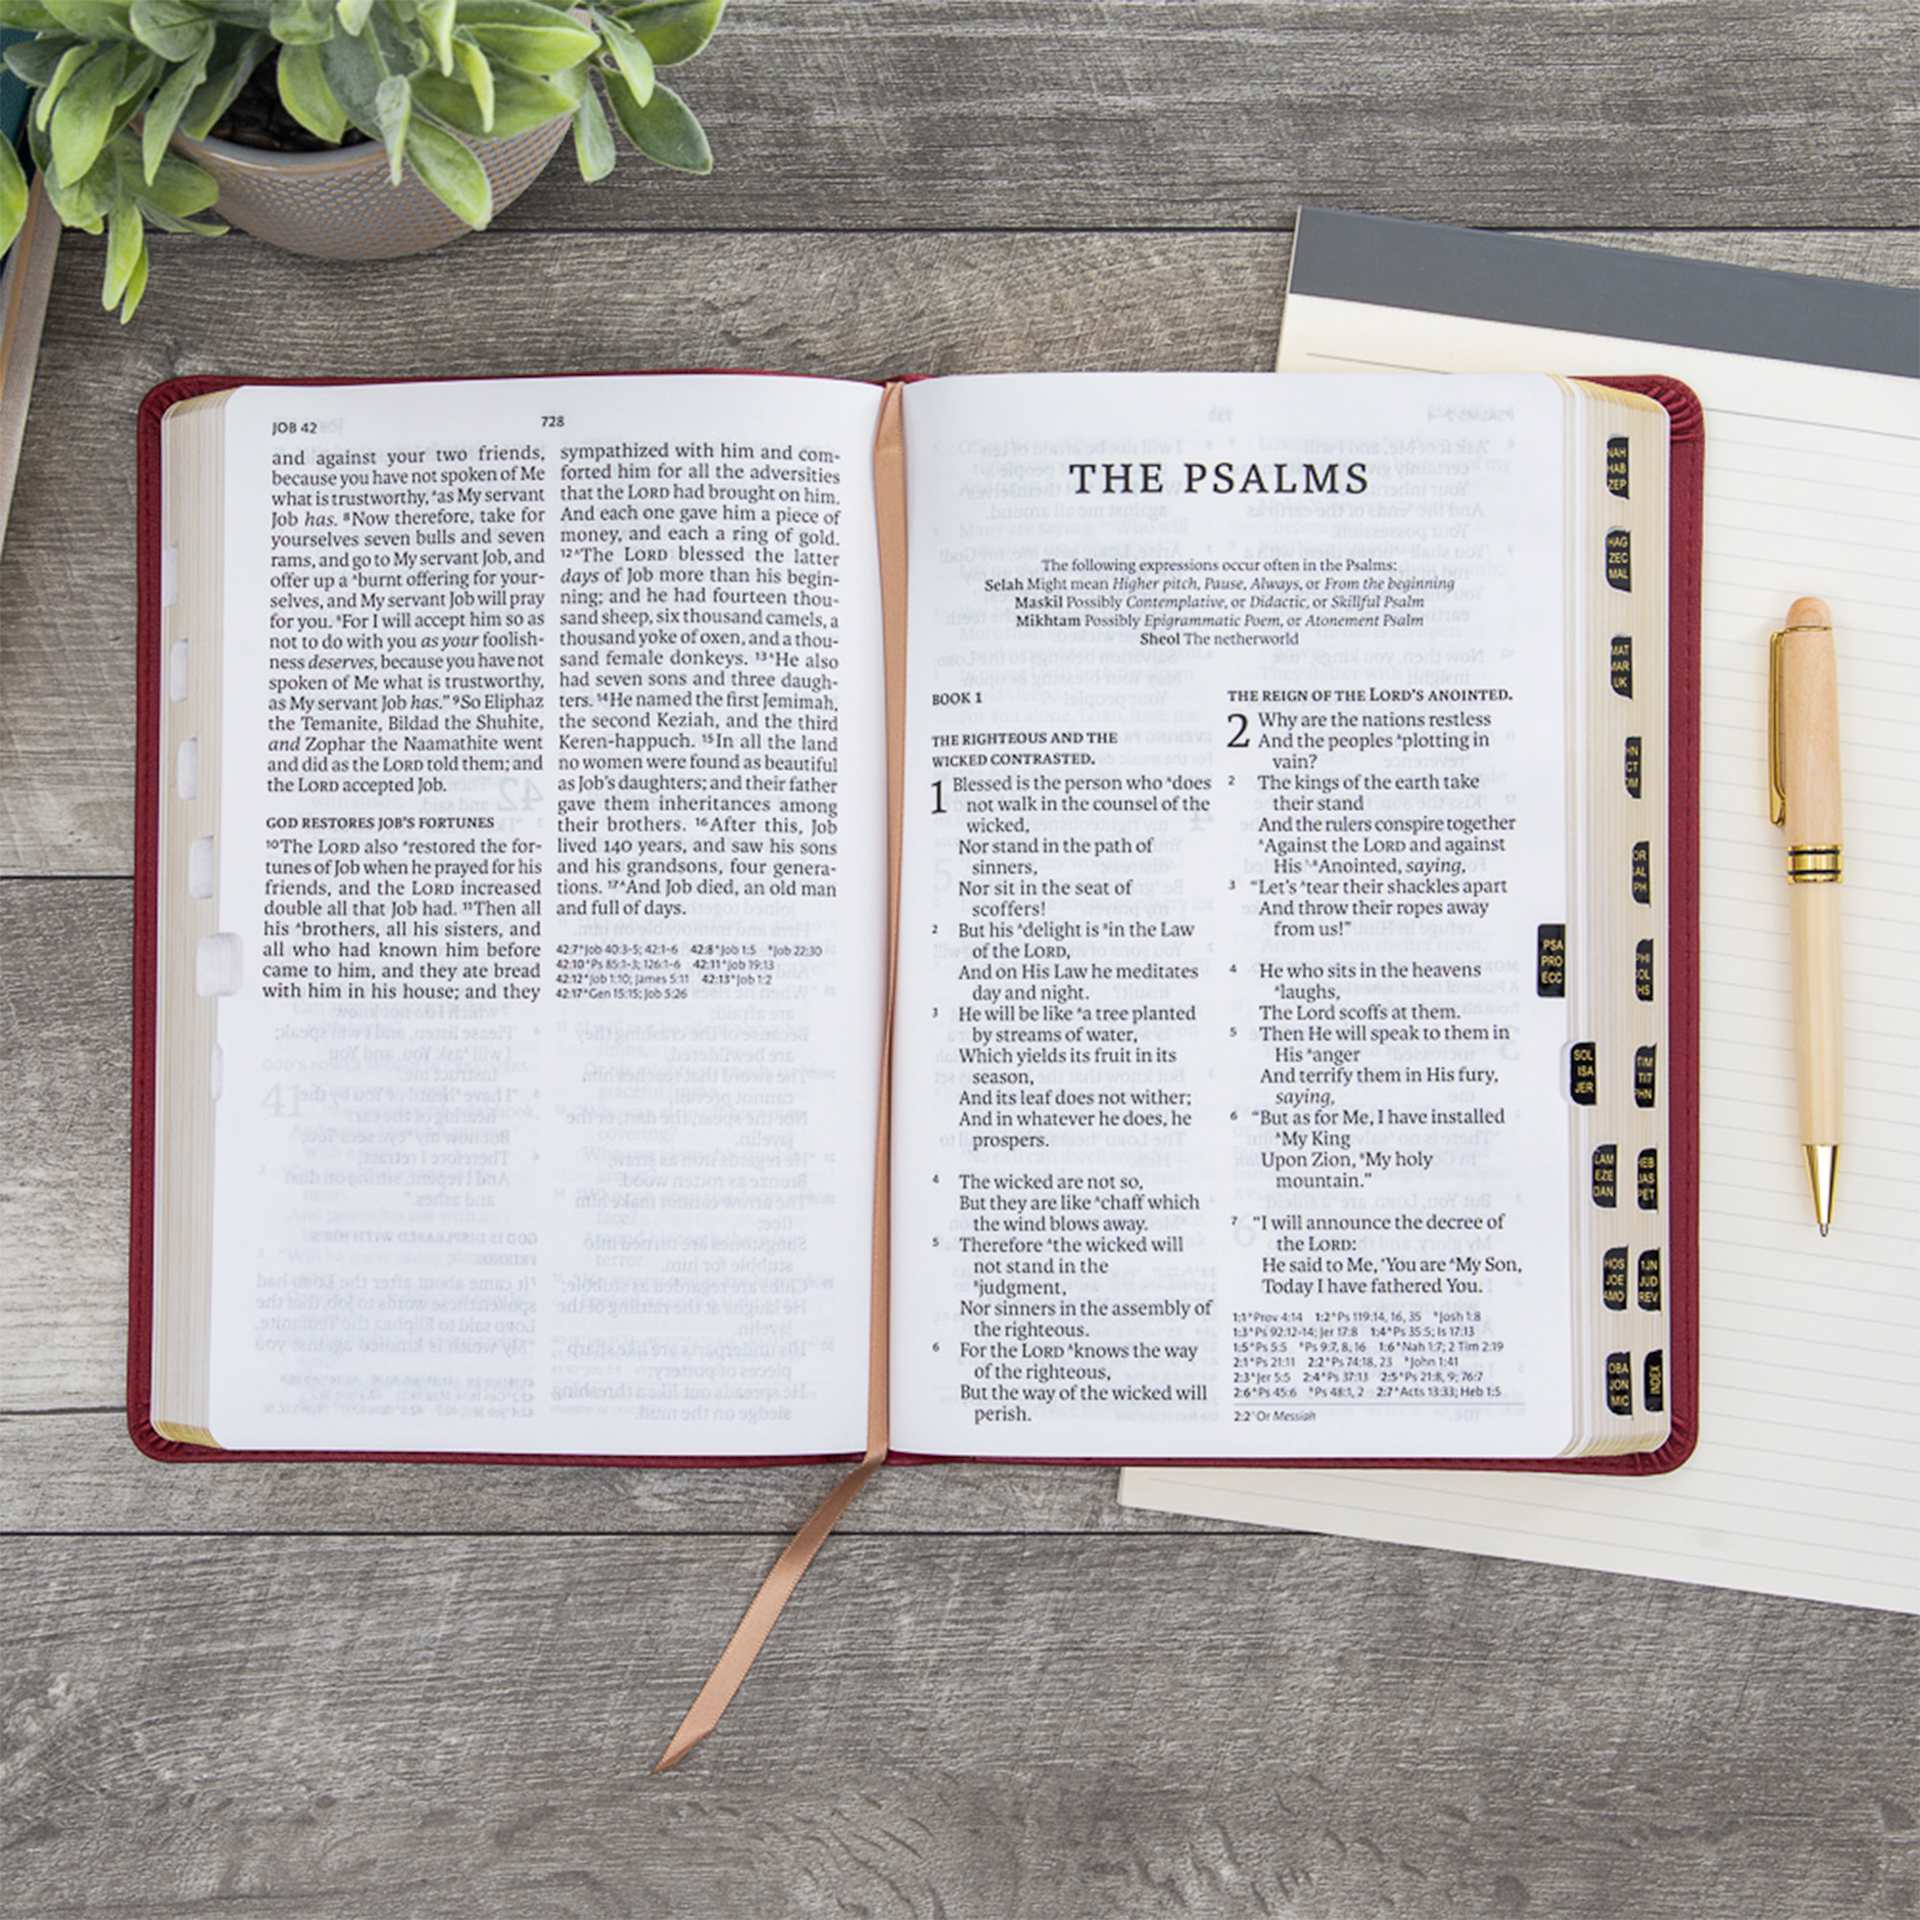 JOB 42
728
and against your two friends,
because you have not spoken of Me
what is trustworthy, ᴬas My servant
Job has. ⁸Now therefore, take for
yourselves seven bulls and seven
rams, and go to My servant Job, and
offer up a ᴬburnt offering for your-
selves, and My servant Job will pray
for you. ᴮFor I will accept him so as
not to do with you as your foolish-
ness deserves, because you have not
spoken of Me what is trustworthy,
as My servant Job has.” ⁹So Eliphaz
the Temanite, Bildad the Shuhite,
and Zophar the Naamathite went
and did as the LORD told them; and
the LORD accepted Job.
GOD RESTORES JOB’S FORTUNES
¹⁰The LORD also ᴬrestored the for-
tunes of Job when he prayed for his
friends, and the LORD increased
double all that Job had. ¹¹Then all
his ᴬbrothers, all his sisters, and
all who had known him before
came to him, and they ate bread
with him in his house; and they
sympathized with him and com-
forted him for all the adversities
that the LORD had brought on him.
And each one gave him a piece of
money, and each a ring of gold.
¹²ᴬThe LORD blessed the latter
days of Job more than his begin-
ning; and he had fourteen thou-
sand sheep, six thousand camels, a
thousand yoke of oxen, and a thou-
sand female donkeys. ¹³ᴬHe also
had seven sons and three daugh-
ters. ¹⁴He named the first Jemimah,
the second Keziah, and the third
Keren-happuch. ¹⁵In all the land
no women were found as beautiful
as Job’s daughters; and their father
gave them inheritances among
their brothers. ¹⁶After this, Job
lived 140 years, and saw his sons
and his grandsons, four genera-
tions. ¹⁷ᴬAnd Job died, an old man
and full of days.
42:7 ᴬJob 40:3-5; 42:1-6 42:8 ᴬJob 1:5 ᴮJob 22:30
42:10 ᴬPs 85:1-3; 126:1-6 42:11 ᴬJob 19:13
42:12 ᴬJob 1:10; James 5:11 42:13 ᴬJob 1:2
42:17 ᴬGen 15:15; Job 5:26
THE PSALMS
The following expressions occur often in the Psalms:
Selah Might mean Higher pitch, Pause, Always, or From the beginning
Maskil Possibly Contemplative, or Didactic, or Skillful Psalm
Mikhtam Possibly Epigrammatic Poem, or Atonement Psalm
Sheol The netherworld
BOOK 1
THE RIGHTEOUS AND THE
WICKED CONTRASTED.
1 Blessed is the person who ᴬdoes
not walk in the counsel of the
wicked,
Nor stand in the path of
sinners,
Nor sit in the seat of
scoffers!
2 But his ᴬdelight is ᴮin the Law
of the LORD,
And on His Law he meditates
day and night.
3 He will be like ᴬa tree planted
by streams of water,
Which yields its fruit in its
season,
And its leaf does not wither;
And in whatever he does, he
prospers.
4 The wicked are not so,
But they are like ᴬchaff which
the wind blows away.
5 Therefore ᴬthe wicked will
not stand in the
ᴮjudgment,
Nor sinners in the assembly of
the righteous.
6 For the LORD ᴬknows the way
of the righteous,
But the way of the wicked will
perish.
THE REIGN OF THE LORD’S ANOINTED.
2 Why are the nations restless
And the peoples ᴬplotting in
vain?
2 The kings of the earth take
their stand
And the rulers conspire together
ᴬAgainst the LORD and against
His ¹·ᴮAnointed, saying,
3 “Let’s ᴬtear their shackles apart
And throw their ropes away
from us!”
4 He who sits in the heavens
ᴬlaughs,
The Lord scoffs at them.
5 Then He will speak to them in
His ᴬanger
And terrify them in His fury,
saying,
6 “But as for Me, I have installed
ᴬMy King
Upon Zion, ᴮMy holy
mountain.”
7 “I will announce the decree of
the LORD:
He said to Me, ‘You are ᴬMy Son,
Today I have fathered You.
1:1 ᴬProv 4:14 1:2 ᴬPs 119:14, 16, 35 ᴮJosh 1:8
1:3 ᴬPs 92:12-14; Jer 17:8 1:4 ᴬPs 35:5; Is 17:13
1:5 ᴬPs 5:5 ᴮPs 9:7, 8, 16 1:6 ᴬNah 1:7; 2 Tim 2:19
2:1 ᴬPs 21:11 2:2 ᴬPs 74:18, 23 ᴮJohn 1:41
2:3 ᴬJer 5:5 2:4 ᴬPs 37:13 2:5 ᴬPs 21:8, 9; 76:7
2:6 ᴬPs 45:6 ᴮPs 48:1, 2 2:7 ᴬActs 13:33; Heb 1:5
2:2 ¹Or Messiah
NAH
HAB
ZEP
HAG
ZEC
MAL
MAT
MAR
UK
HN
CT
OM
OR
AL
PH
PSA
PRO
ECC
PHI
OL
HS
SOL
ISA
JER
TIM
TIT
PHN
LAM
EZE
DAN
HEB
JAS
PET
HOS
JOE
AMO
1JN
JUD
REV
OBA
JON
MIC
INDEX